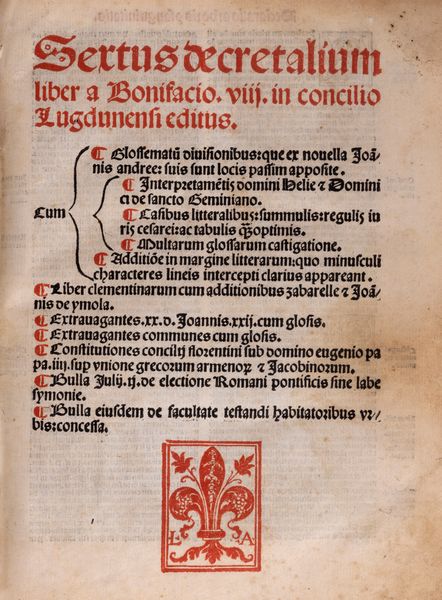 Sextus decretalium
liber a Bonifacio. viij. in concilio
Lugdunensi editus.
Cum
¶ Glossematū diuisionibus: que ex nouella Joā⸗
nis andree: suis sunt locis passim apposite.
¶ Interpretamētis domini Helie ⁊ Domini
ci de sancto Geminiano.
¶ Casibus litteralibus: summulis: regulis iu
ris cesarei: ac tabulis q̄ꝫoptimis.
¶ Multarum glossarum castigatione.
¶ Additiōe in margine litterarum: quo minusculi
characteres lineis intercepti clarius appareant.
¶ Liber clementinarum cum additionibus zabarelle ⁊ Joā⸗
nis de ymola.
¶ Extrauagantes .xx. d. Joannis .xxij. cum glosis.
¶ Extrauagantes communes cum glosis.
¶ Constitutiones concilij florentini sub domino eugenio pa
pa .iiij. sup vnione grecorum armenoꝝ ⁊ Jacobinorum.
¶ Bulla Julij .ij. de electione Romani pontificis sine labe
symonie.
¶ Bulla eiusdem de facultate testandi habitatoribus vr⸗
bis: concessa.
L A